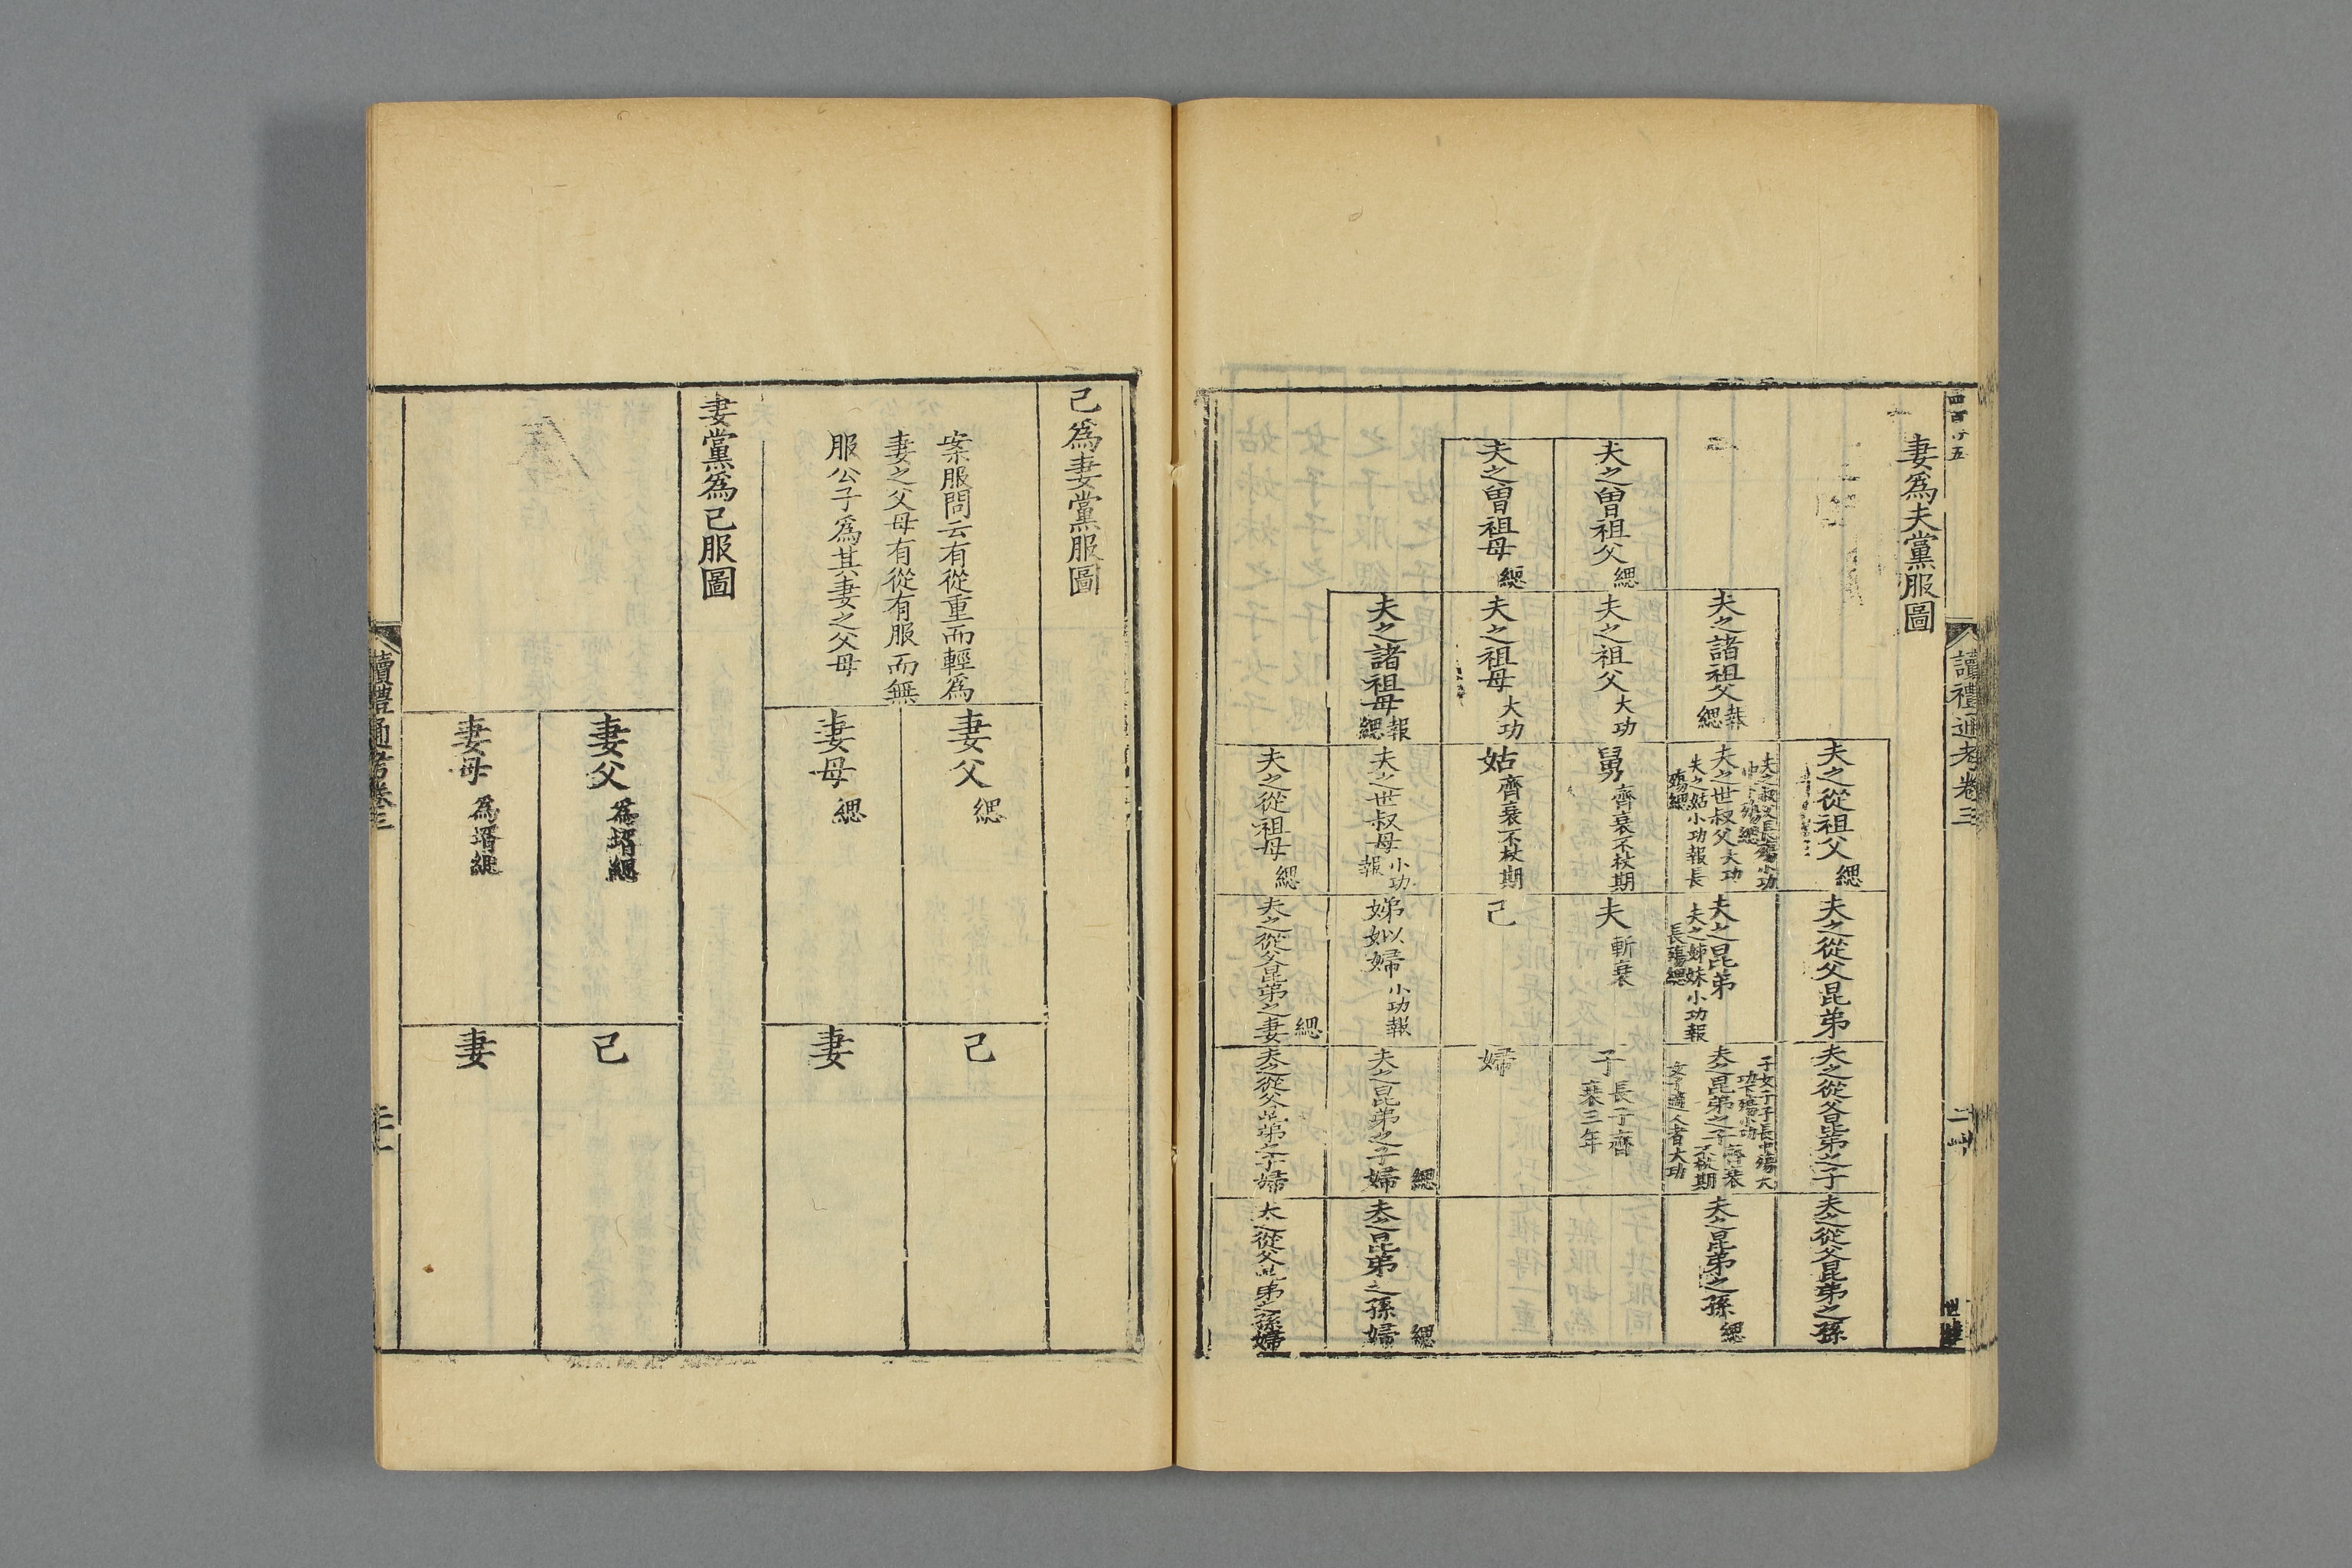 讀禮通考卷三
妻為夫黨服圖
夫之曾祖父 緦
夫之曾祖母 緦
夫之諸祖父 緦報
夫之祖父 大功
夫之祖母 大功
夫之諸祖母 報緦
夫之從祖父 緦
中下殤緦
夫之世叔父 大功
夫之姑小功報長
殤緦
舅 齊衰不杖期
姑 齊衰不杖期
夫之世叔母 小功報
夫之從祖母 緦
夫之從父昆弟
夫之昆弟
夫之姊妹小功報
長殤緦
夫 斬衰
己
娣姒婦 小功報
夫之從父昆弟之妻 緦
夫之從父昆弟之子
子女子子長中殤大
功下殤小功
夫之昆弟之子 齊衰不杖期
女子適人者大功
子 長子齊衰三年
婦
夫之昆弟之子婦 緦
夫之從父昆弟之子婦
夫之從父昆弟之孫
夫之昆弟之孫 緦
夫之昆弟之孫婦 緦
夫之從父昆弟之孫婦
己為妻黨服圖
案服問云有從重而輕為
妻之父母有從有服而無
服公子為其妻之父母
妻父 緦
妻母 緦
己
妻
妻黨為己服圖
妻父 為壻緦
妻母 為壻緦
己
妻
讀禮通考卷三